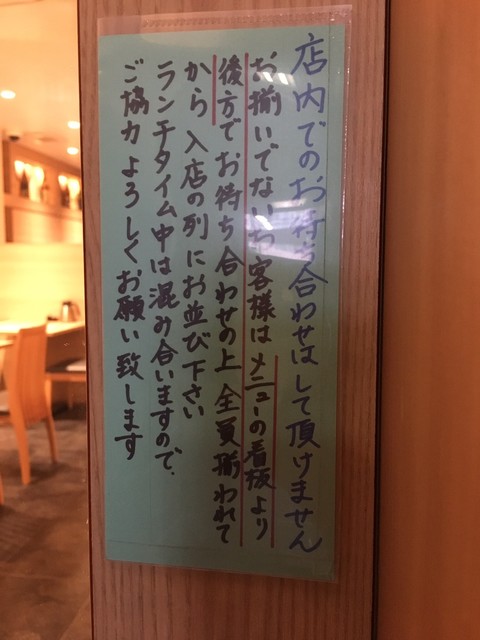 店内でのお待ち合わせはして頂けません
お揃いでないお客様はメニューの看板より
後方でお待ち合わせの上全員揃われて
から入店の列にお並び下さい
ランチタイム中は混み合いますので、
ご協力よろしくお願い致します